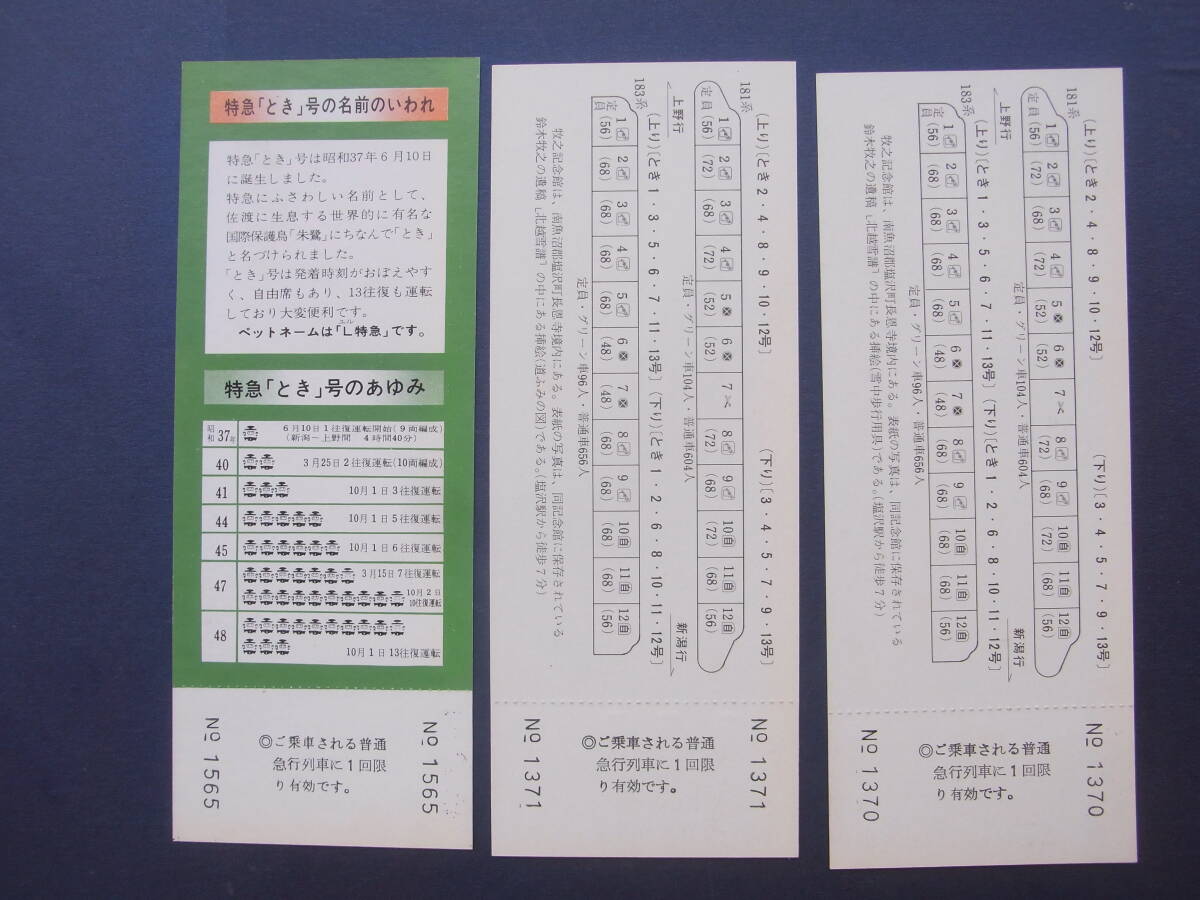 特急「とき」号の名前のいわれ
特急「とき」号は昭和37年6月10日
に誕生しました。
特急にふさわしい名前として、
佐渡に生息する世界的に有名な
国際保護鳥「朱鷺」にちなんで「とき」
と名づけられました。
「とき」号は発着時刻がおぼえやす
く、自由席もあり、13往復も運転
しており大変便利です。
ペットネームは「L特急」です。
エル
特急「とき」号のあゆみ
昭和37年 6月10日1往復運転開始(9両編成)
(新潟―上野間 4時間40分)
40 3月25日2往復運転(10両編成)
41 10月1日3往復運転
44 10月1日5往復運転
45 10月1日6往復運転
47 3月15日7往復運転
10月2日
10往復運転
48 10月1日13往復運転
№ 1565
◎ご乗車される普通
急行列車に1回限
り有効です。
№ 1565
(上り)〔とき2・4・8・9・10・12号〕 (下り)〔3・4・5・7・9・13号〕
181系
1 2 3 4 5 6 7 8 9 10自 11自 12自
定員(56) (72) (68) (72) (52) (52) (72) (68) (72) (68) (56)
定員・グリーン車104人・普通車604人
上野行 新潟行
(上り)〔とき1・3・5・6・7・11・13号〕 (下り)〔とき1・2・6・8・10・11・12号〕
183系
1 2 3 4 5 6 7 8 9 10自 11自 12自
定員(56) (68) (68) (68) (68) (48) (48) (68) (68) (68) (68) (56)
定員・グリーン車96人・普通車656人
牧之記念館は、南魚沼郡塩沢町長恩寺境内にある。表紙の写真は、同記念館に保存されている
鈴木牧之の遺稿「北越雪譜」の中にある挿絵(道ふみの図)である。(塩沢駅から徒歩7分)
№ 1371
◎ご乗車される普通
急行列車に1回限
り有効です。
№ 1371
(上り)〔とき2・4・8・9・10・12号〕 (下り)〔3・4・5・7・9・13号〕
181系
1 2 3 4 5 6 7 8 9 10自 11自 12自
定員(56) (72) (68) (72) (52) (52) (72) (68) (72) (68) (56)
定員・グリーン車104人・普通車604人
上野行 新潟行
(上り)〔とき1・3・5・6・7・11・13号〕 (下り)〔とき1・2・6・8・10・11・12号〕
183系
1 2 3 4 5 6 7 8 9 10自 11自 12自
定員(56) (68) (68) (68) (68) (48) (48) (68) (68) (68) (68) (56)
定員・グリーン車96人・普通車656人
牧之記念館は、南魚沼郡塩沢町長恩寺境内にある。表紙の写真は、同記念館に保存されている
鈴木牧之の遺稿「北越雪譜」の中にある挿絵(雪中歩行用具)である。(塩沢駅から徒歩7分)
№ 1370
◎ご乗車される普通
急行列車に1回限
り有効です。
№ 1370